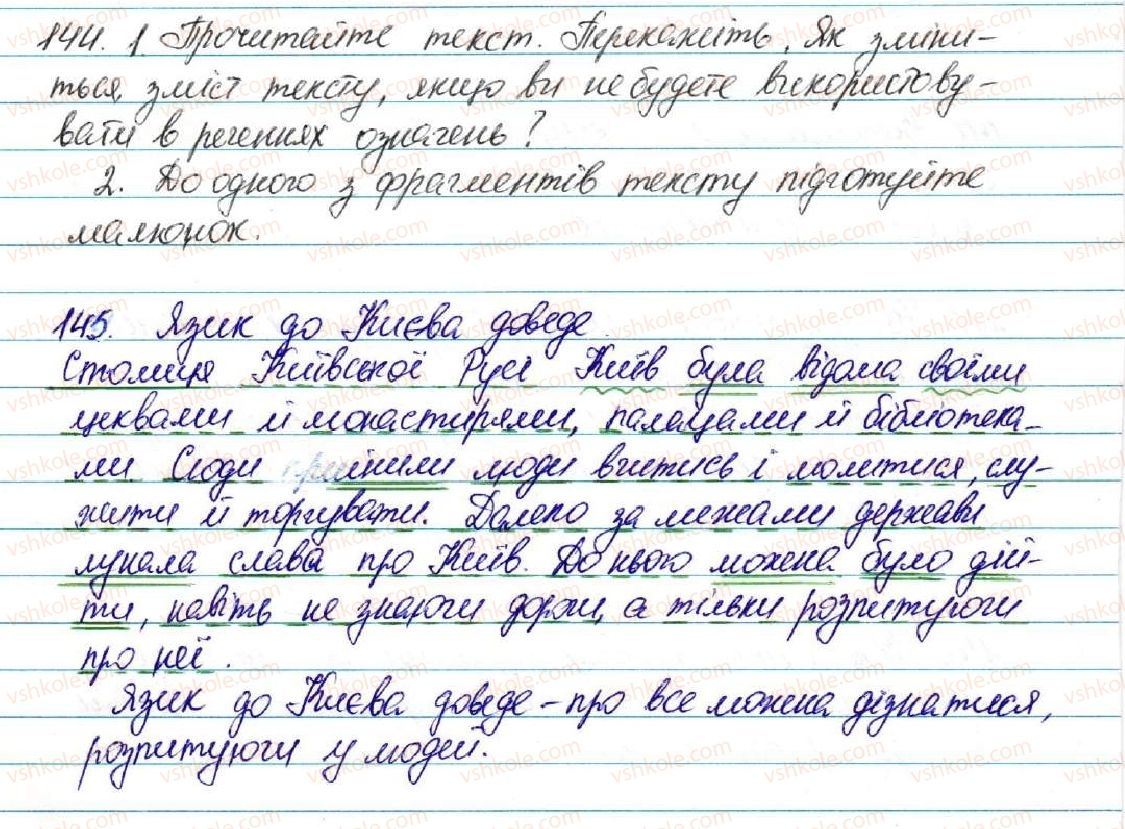 144. 1. Прочитайте текст. Перекажіть. Як зміни-
ться зміст тексту, якщо ви не будете використову-
вати в реченнях означень?
2. До одного з фрагментів тексту підготуйте
малюнок.
145. Язик до Києва доведе
Столиця Київської Русі Київ була відома своїми
цеквами й монастирями, палацами й бібліотека-
ми. Сюди прийшли люди вчитись і молитися, слу-
жити й торгувати. Далеко за межами держави
лунала слава про Київ. До нього можна було дій-
ти, навіть не знаючи дороги, а тільки розпитуючи
про неї.
Язик до Києва доведе – про все можна дізнатися,
розпитуючи у людей.
vshkole.com